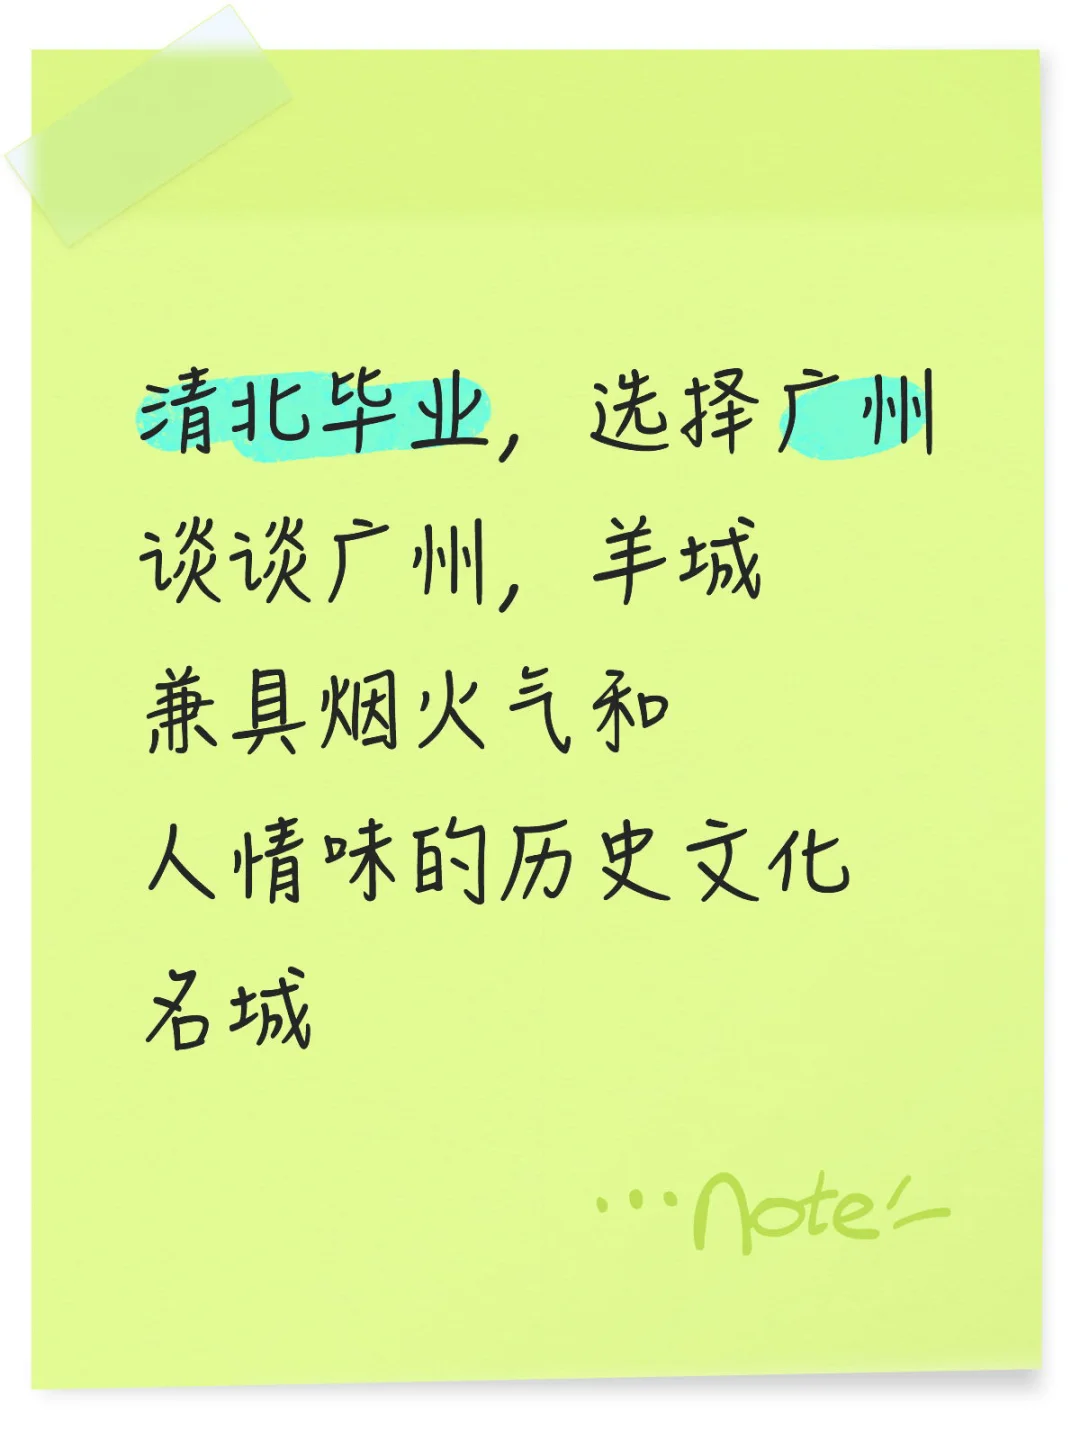 清北毕业，选择广州
谈谈广州，羊城
兼具烟火气和
人情味的历史文化
名城
...note